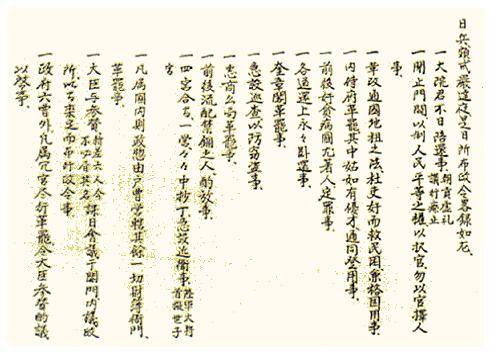 日所布政令畧錄如左
一大院君不日陪還事 朝貢虛禮議行廢止
一閉止門閥以制人民平等之權以択官勿以官擇人
事
一革改通國地租之法杜吏奸而救民困兼裕國用事
一內侍府革罷其中如有優才通同登用事
一前後奸貪病國尤著人定罪事
一各道還上永々臥還事
一奎章閣革罷事
一急設巡査以防竊盜事
一惠商公局革罷事
一前後流配禁錮之人酌放事
一四營合為一營々中抄丁急設近衛事 陸軍大將首擬世子
宮
一凡屬國內財政總由戶曹管轄其餘一切財簿衙門
革罷事
一大臣与參贊 課日會議于閤門內議政
所以為稟定而布行政令事
一政府六曹外凡屬冗官盡行革罷令大臣參贊酌議
以啓事